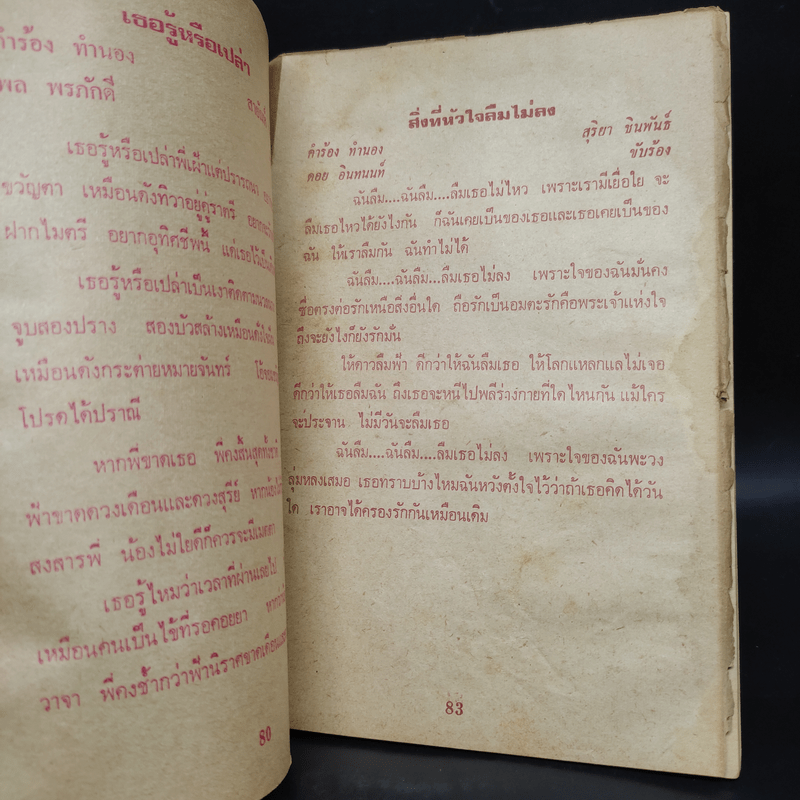 เธอรู้หรือเปล่า
คำร้อง ทำนอง
พล พรภักดี
เธอรู้หรือเปล่าพี่เฝ้าแต่ปรารถนา
ขวัญตา เหมือนดังทิวาอยู่คู่ราตรี
ฝากไมตรี อยากอุทิศชีพนี้
เธอรู้หรือเปล่าเป็นเงาติดตาม
จูบสองปราง สองบัวสล้างเหมือนดัง
เหมือนดังกระต่ายหมายจันทร์
โปรดได้ปราณี
หากพี่ขาดเธอ พี่คงสิ้นสุด
ฟ้าขาดดวงเดือนและดวงสุรีย์
สงสารพี่ น้องไม่ใยดีก็ควรจะมีเมตตา
เธอรู้ไหมว่าเวลาที่ผ่านเลยไป
เหมือนคนเป็นไข้ที่รอคอยยา
วาจา พี่คงช้ำกว่าฟ้านิราศขาดเดือน
80
สิ่งที่หัวใจลืมไม่ลง
คำร้อง ทำนอง สุริยา ชินพันธ์
ดอย อินทนนท์ ขับร้อง
ฉันลืม....ฉันลืม....ลืมเธอไม่ไหว เพราะเรามีเยื่อใย จะ
ลืมเธอไหวได้ยังไงกัน ก็ฉันเคยเป็นของเธอและเธอเคยเป็นของ
ฉัน ให้เราลืมกัน ฉันทำไม่ได้
ฉันลืม....ฉันลืม...ลืมเธอไม่ลง เพราะใจของฉันมั่นคง
ซื่อตรงต่อรักเหนือสิ่งอื่นใด ถือรักเป็นอมตะรักคือพระเจ้าแห่งใจ
ถึงจะยังไงก็ยังรักมั่น
ให้ดาวลืมฟ้า ดีกว่าให้ฉันลืมเธอ ให้โลกแหลกแลไม่เจอ
ดีกว่าให้เธอลืมฉัน ถึงเธอจะหนีไปพลีร่างกายที่ใดไหนกัน แม้ใคร
จะประจาน ไม่มีวันจะลืมเธอ
ฉันลืม....ฉันลืม....ลืมเธอไม่ลง เพราะใจของฉันพะวง
ลุ่มหลงเสมอ เธอทราบบ้างไหมฉันหวังตั้งใจไว้ว่าถ้าเธอคิดได้วัน
ใด เราอาจได้ครองรักกันเหมือนเดิม
83